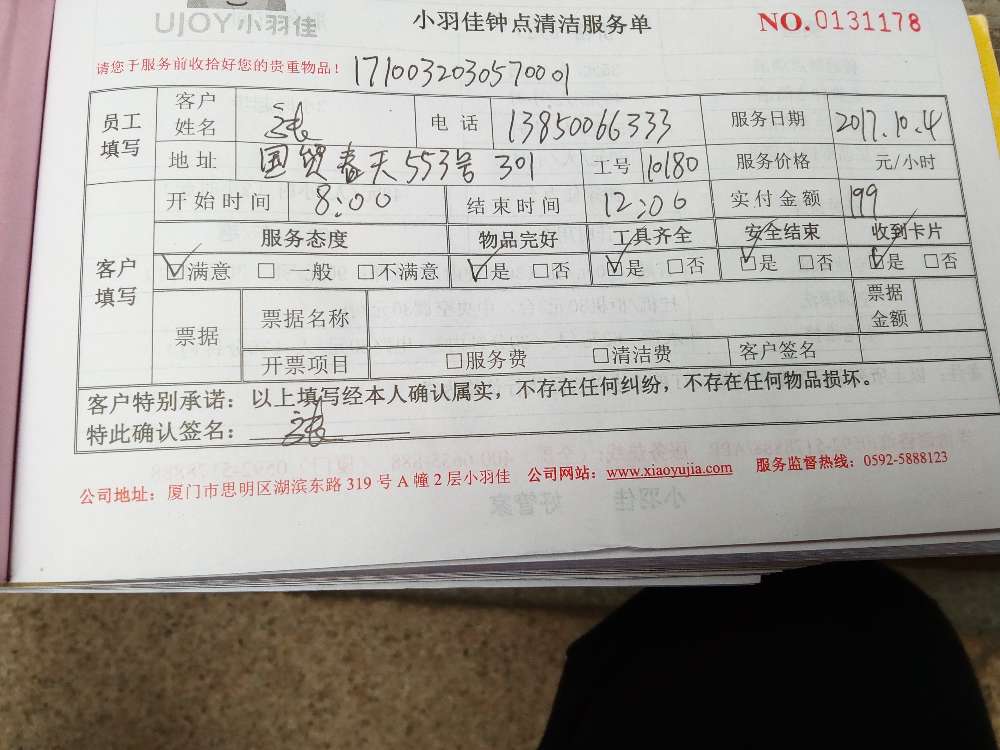 UJOY小羽佳 小羽佳钟点清洁服务单 NO.0131178
请您于服务前收拾好您的贵重物品! 1710032030570001
员工填写 客户姓名 张 电话 13850066333 服务日期 2017.10.4
地址 国贸春天553号301 工号 10180 服务价格 元/小时
客户填写 开始时间 8:00 结束时间 12:00 实付金额 199
服务态度 物品完好 工具齐全 安全结束 收到卡片
☑满意 □一般 □不满意 ☑是 □否 ☑是 □否 ☑是 □否 ☑是 □否
票据 票据名称 票据金额
开票项目 □服务费 □清洁费 客户签名
客户特别承诺：以上填写经本人确认属实，不存在任何纠纷，不存在任何物品损坏。
特此确认签名： 张
公司地址：厦门市思明区湖滨东路 319 号 A 幢 2 层小羽佳 公司网站：www.xiaoyujia.com 服务监督热线：0592-5888123